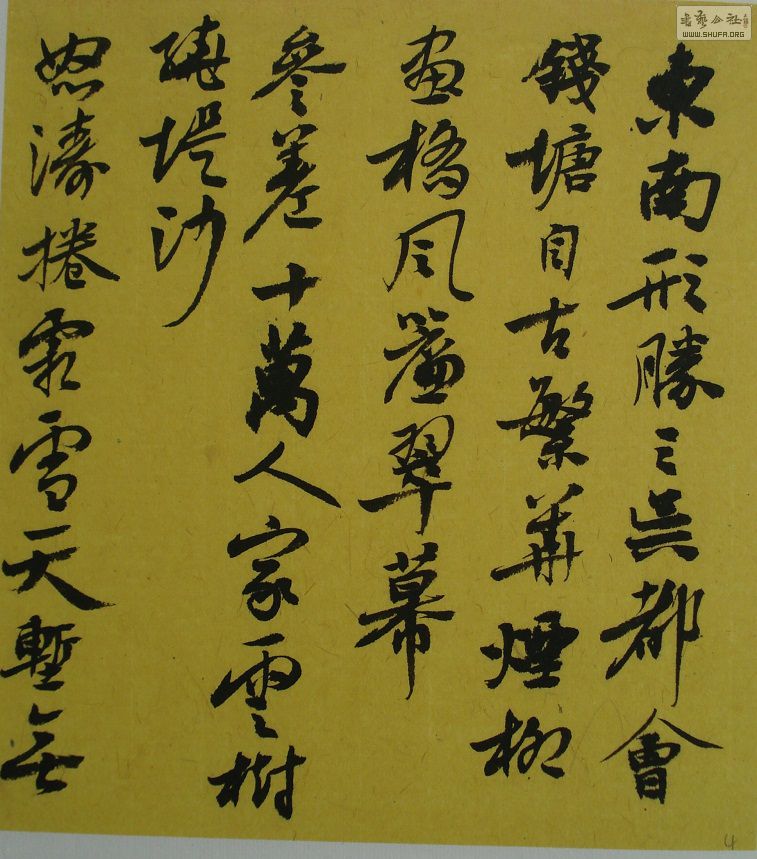 東南形勝三吳都會
錢塘自古繁華煙柳
畫橋風簾翠幕
參差十萬人家雲樹
繞堤沙
怒濤捲霜雪天塹無
書藝公社
WWW.SHUFA.ORG
4